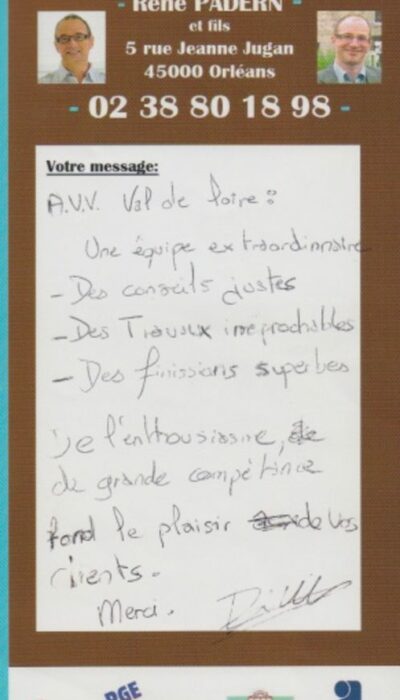 - René PADERN -
et fils
5 rue Jeanne Jugan
45000 Orléans
- 02 38 80 18 98 -
Votre message:
A.V.V. Val de Loire :
Une équipe extraordinnaire
- Des conseils justes
- Des Travaux irréprochables
- Des finissions superbes
De l'enthousiasme,
de grande compétence
le plaisir de vos
clients.
Merci.
RGE